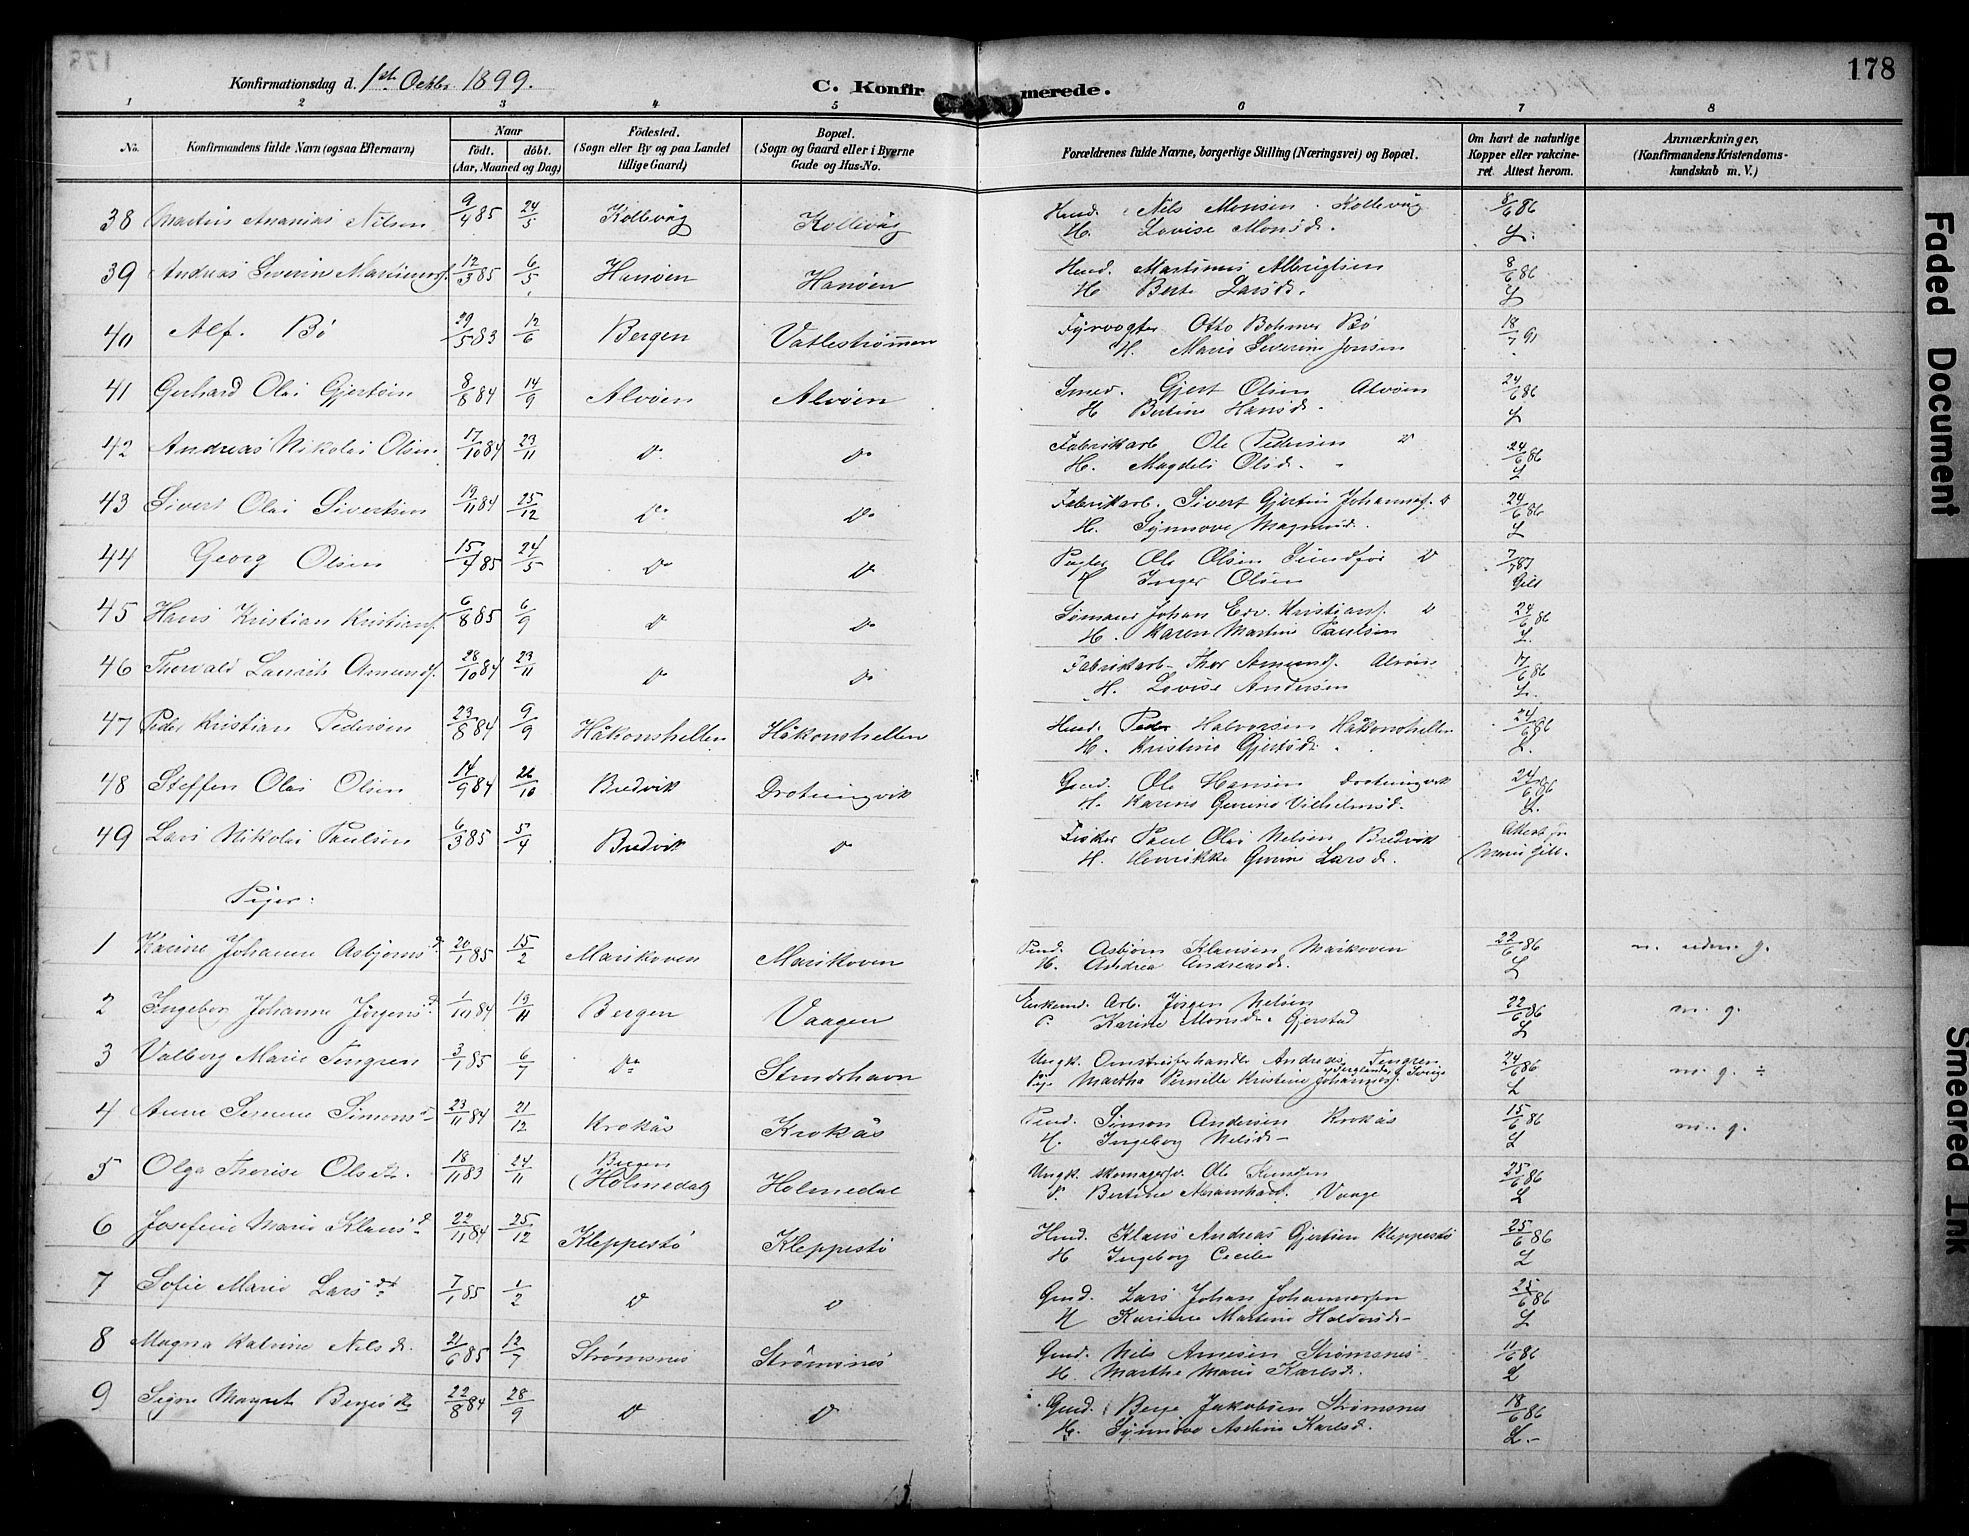 178
Konfirmationsdag d. 1ste Octbr. 1899.
C. Konfirmerede.
1 2 3 4 5 6 7 8
No.
Konfirmandens fulde Navn (ogsaa Efternavn)
Naar
født. døbt.
(Aar, Maaned og Dag)
Fødested.
(Sogn eller By og paa Landet
tillige Gaard)
Bopæl.
(Sogn og Gaard eller i Byerne
Gade og Hus-No.
Forældrenes fulde Navne, borgerlige Stilling (Næringsvei) og Bopæl.
Om havt de naturlige
Kopper eller vakcine-
ret. Attest herom.
Anmærkninger.
(Konfirmandens Kristendoms-
kundskab m. V.)
38 Martin Ananias Nilsen 9/4 85 24/5 Kollevåg Kollevåg Hmd. Nils Monsen Kollevåg 8/6 86
H. Lovise Monsd. L.
39 Andreas Severin Martinus. 12/3 85 6/5 Hanøen Hanøen Hmd. Martinus Albrigtsen 8/6 86
H. Berte Larsd. L
40 Alf. Bö 29/5 83 12/6 Bergen Vatlestrømmen Fyrvogter Otto Bohmer Bö 18/7 91
H. Marie Severine Jensen
41 Gerhard Olai Gjertsen 8/8 84 14/9 Alvøen Alvøen Smed. Gjert Olsen Alvøen 24/6 86
H. Bertine Hansd. L
42 Andreas Nikolai Olsen 17/10 84 23/11 do do Fabrikarb. Ole Pedersen do 24/6 86
H. Magdeli Olsd. L
43 Sivert Olai Sivertsen 19/11 84 25/12 do do Fabrikarb. Sivert Gjertin Johannes. do 24/6 86
H. Synnove Magnusd. L
44 Georg Olsen 15/4 85 24/5 do do Ole Olsen Sundfør do 7/7 87
H Inger Olsen Gild
45 Hans Kristian Kristians. 6/8 85 6/9 do do Sømand Johan Edv. Kristians. do 24/6 86
H. Karen Martine Paulsen L.
46 Thorvald Laurits Amunds. 28/10 84 23/11 do do Fabrikarb. Thor Amunds. Alvøen 17/6 86
H. Lovise Andersen L.
47 Peder Kristian Pedersen 23/8 84 9/9 Håkonshellen Håkonshellen Hmd. Peder Halvorsen Håkonshellen 24/6 86
H. Kristine Gjertsd. L.
48 Steffen Olai Olsen 14/9 84 26/10 Bredvik Drotningvik Gmd. Ole Hansen Drotningvik 24/6 86
H. Karine Gurine Vilhelmsd. L.
49 Lars Nikolai Paulsen 6/3 85 5/4 Bredvik do Fisker Paul Olai Nilsen Bredvik Attest fra
H. Henrikke Gurine Larsd. Maries Gild.
Piger:
1 Karine Johanne Asbjørnsd. 20/1 85 15/2 Marikoven Marikoven Pmd. Asbjørn Klausen Marikoven 22/6 86 m. uden g.
H. Andrea Andreasd. L
2 Ingeborg Johanne Jørgensd. 1/10 84 19/11 Bergen Vaagen Enkemd. Arb. Jørgen Nilsen 22/6 86 m. g.
P. Karine Monsd. Gjerstad L
3 Valborg Marie Tengren 3/1 85 6/7 do Strudshavn Ungk. Omstreiferhandler Andreas Tengren 24/6 86 m. g. ÷
Pige Martha Pernille Kristine Johannes. L
4 Anne Serine Simonsd. 23/11 84 21/12 Krokås Krokås Pmd. Simon Andersen Krokås 15/6 86 m. g.
H. Ingeborg Nilsd. L
5 Olga Therise Olsd. 18/11 83 24/11 Bergen Holmedal Ungk. skomagersv. Ole Knudsen 25/6 86
(Holmedal) P. Bertine Abrahamsd. Vaage L
6 Josefine Marie Klausd. 22/11 84 25/12 Kleppestø Kleppestø Hmd. Klaus Andreas Gjertsen Kleppestø 25/6 86
H Ingeborg Cecilie L
7 Sofie Marie Larsd. 7/1 85 1/2 do do Gmd. Lars Johan Johannessen 25/6 86
H Karine Martine Haldorsd. L
8 Magna Katrine Nilsd. 21/6 85 12/7 Strømsnes Strømsnes Gmd. Nils Arnesen Strømsnes 11/6 86
H. Marthe Marie Karlsd. L
9 Signe Magret Berjesd. 22/8 84 28/9 do do Gmd. Berje Jakobsen Strømsnes 18/6 86
H. Synnove Aseline Karlsd. L.
Faded Document
Smeared Ink